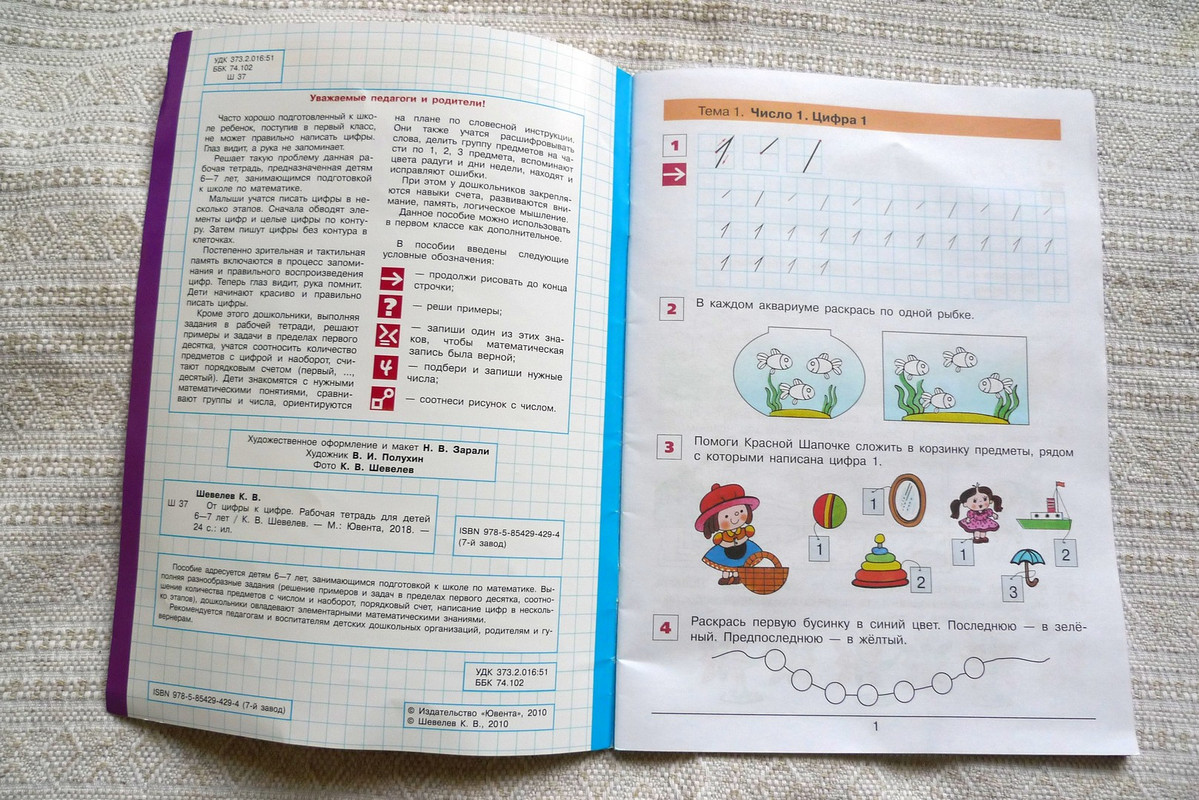 УДК 373.2.016:51
ББК 74.102
Ш 37
Уважаемые педагоги и родители!
Часто хорошо подготовленный к шко-
ле ребенок, поступив в первый класс,
не может правильно написать цифры.
Глаз видит, а рука не запоминает.
Решает такую проблему данная ра-
бочая тетрадь, предназначенная детям
6—7 лет, занимающимся подготовкой
к школе по математике.
Малыши учатся писать цифры в не-
сколько этапов. Сначала обводят эле-
менты цифр и целые цифры по конту-
ру. Затем пишут цифры без контура в
клеточках.
Постепенно зрительная и тактильная
память включаются в процесс запоми-
нания и правильного воспроизведения
цифр. Теперь глаз видит, рука помнит.
Дети начинают красиво и правильно
писать цифры.
Кроме этого дошкольники, выполняя
задания в рабочей тетради, решают
примеры и задачи в пределах первого
десятка, учатся соотносить количество
предметов с цифрой и наоборот, счи-
тают порядковым счетом (первый, ...,
десятый). Дети знакомятся с нужными
математическими понятиями, сравни-
вают группы и числа, ориентируются
на плане по словесной инструкции.
Они также учатся расшифровывать
слова, делить группу предметов на ча-
сти по 1, 2, 3 предмета, вспоминают
цвета радуги и дни недели, находят и
исправляют ошибки.
При этом у дошкольников закрепля-
ются навыки счета, развиваются вни-
мание, память, логическое мышление.
Данное пособие можно использовать
в первом классе как дополнительное.
В пособии введены следующие
условные обозначения:
— продолжи рисовать до конца
строчки;
? — реши примеры;
— запиши один из этих зна-
ков, чтобы математическая
запись была верной;
4 — подбери и запиши нужные
числа;
— соотнеси рисунок с числом.
Художественное оформление и макет Н. В. Зарали
Художник В. И. Полухин
Фото К. В. Шевелев
Шевелев К. В.
Ш 37 От цифры к цифре. Рабочая тетрадь для детей
6—7 лет / К. В. Шевелев. — М.: Ювента, 2018. —
24 с.: ил.
ISBN 978-5-85429-429-4
(7-й завод)
Пособие адресуется детям 6—7 лет, занимающимся подготовкой к школе по математике. Вы-
полняя разнообразные задания (решение примеров и задач в пределах первого десятка, соотно-
шение количества предметов с числом и наоборот, порядковый счет, написание цифр в несколь-
ко этапов), дошкольники овладевают элементарными математическими знаниями.
Рекомендуется педагогам и воспитателям детских дошкольных организаций, родителям и гу-
вернерам.
УДК 373.2.016:51
ББК 74.102
ISBN 978-5-85429-429-4 (7-й завод)
© Издательство «Ювента», 2010
© Шевелев К. В., 2010
Тема 1. Число 1. Цифра 1
1
1
1 1 1 1 1 1 1 1 1 1 1
1 1 1 1
2 В каждом аквариуме раскрась по одной рыбке.
3 Помоги Красной Шапочке сложить в корзинку предметы, рядом
с которыми написана цифра 1.
1
1
2
1
3
2
4 Раскрась первую бусинку в синий цвет. Последнюю — в зелё-
ный. Предпоследнюю — в жёлтый.
1